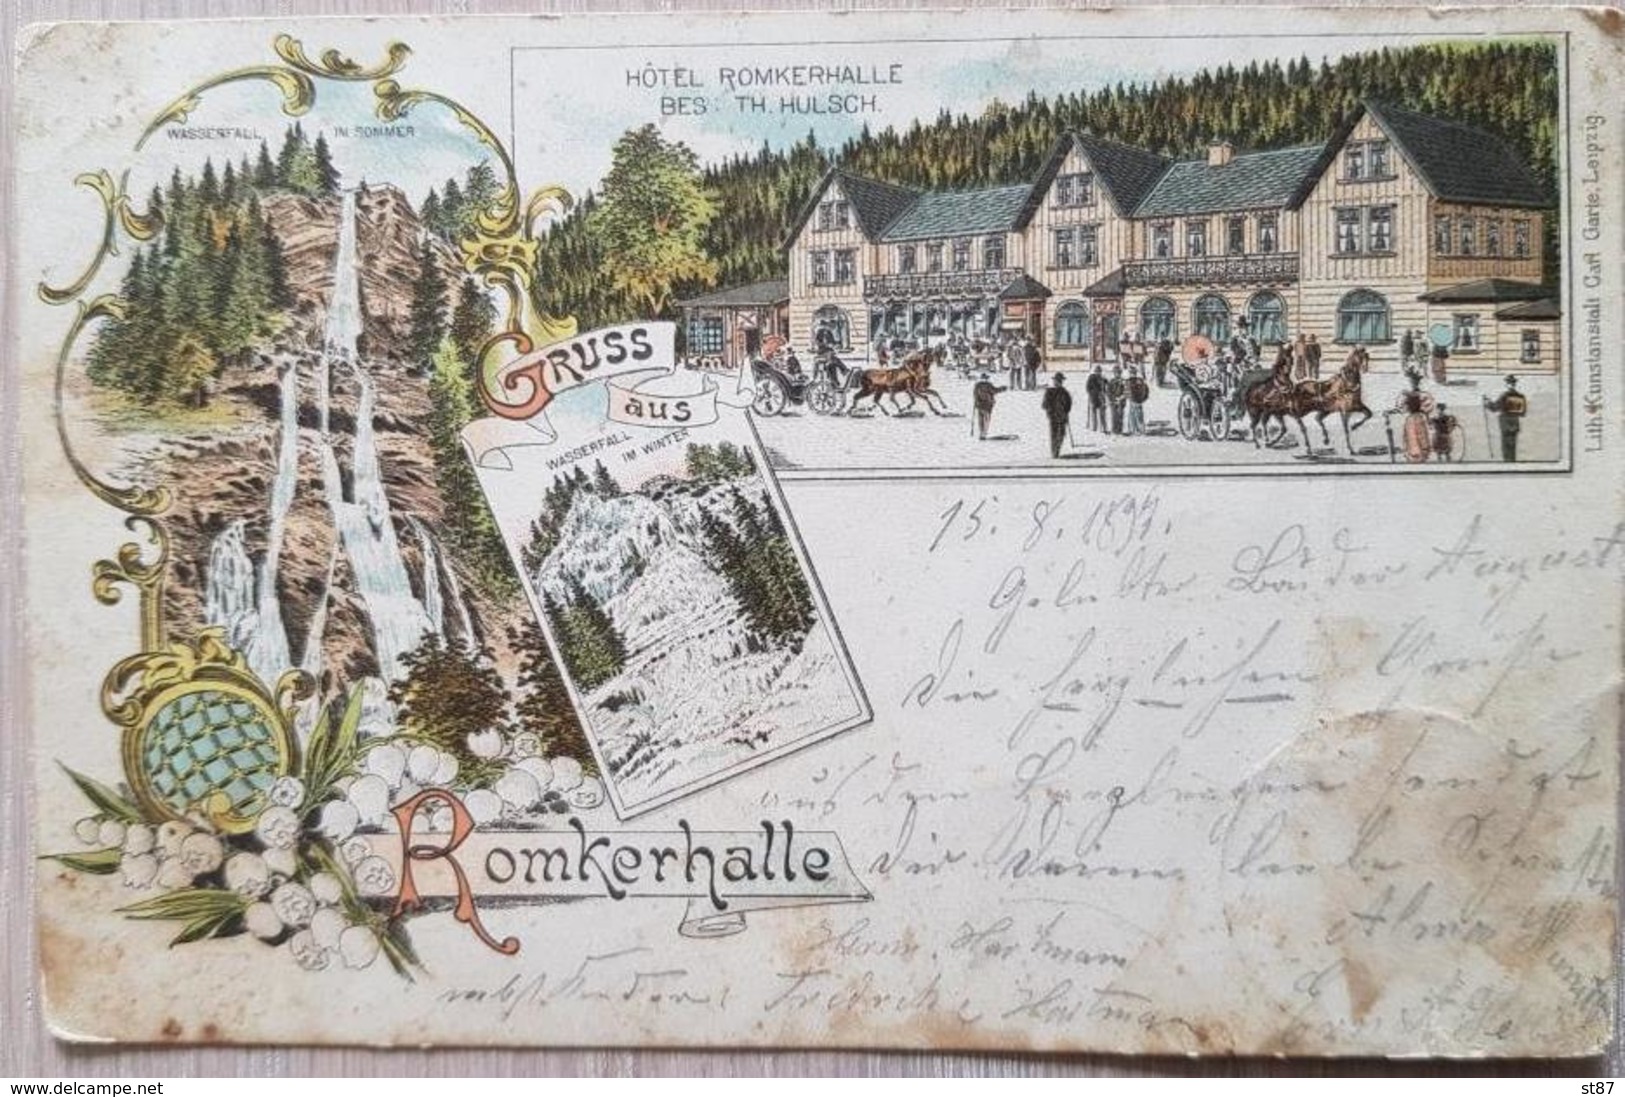 HÔTEL ROMKERHALLE
BES: TH. HULSCH.
WASSERFALL IM SOMMER
GRUSS
aus
WASSERFALL
IM WINTER
Romkerhalle
Lith. Kunstanstalt Carl Garte, Leipzig
15. 8. 1897.
Geliebter Bruder August
Die herzlichen Grüße
aus den Harzbergen sendet
Dir Deine liebe
Alma
Herm. Hartmann
nebst Friedericke Hartmann
www.delcampe.net
st87